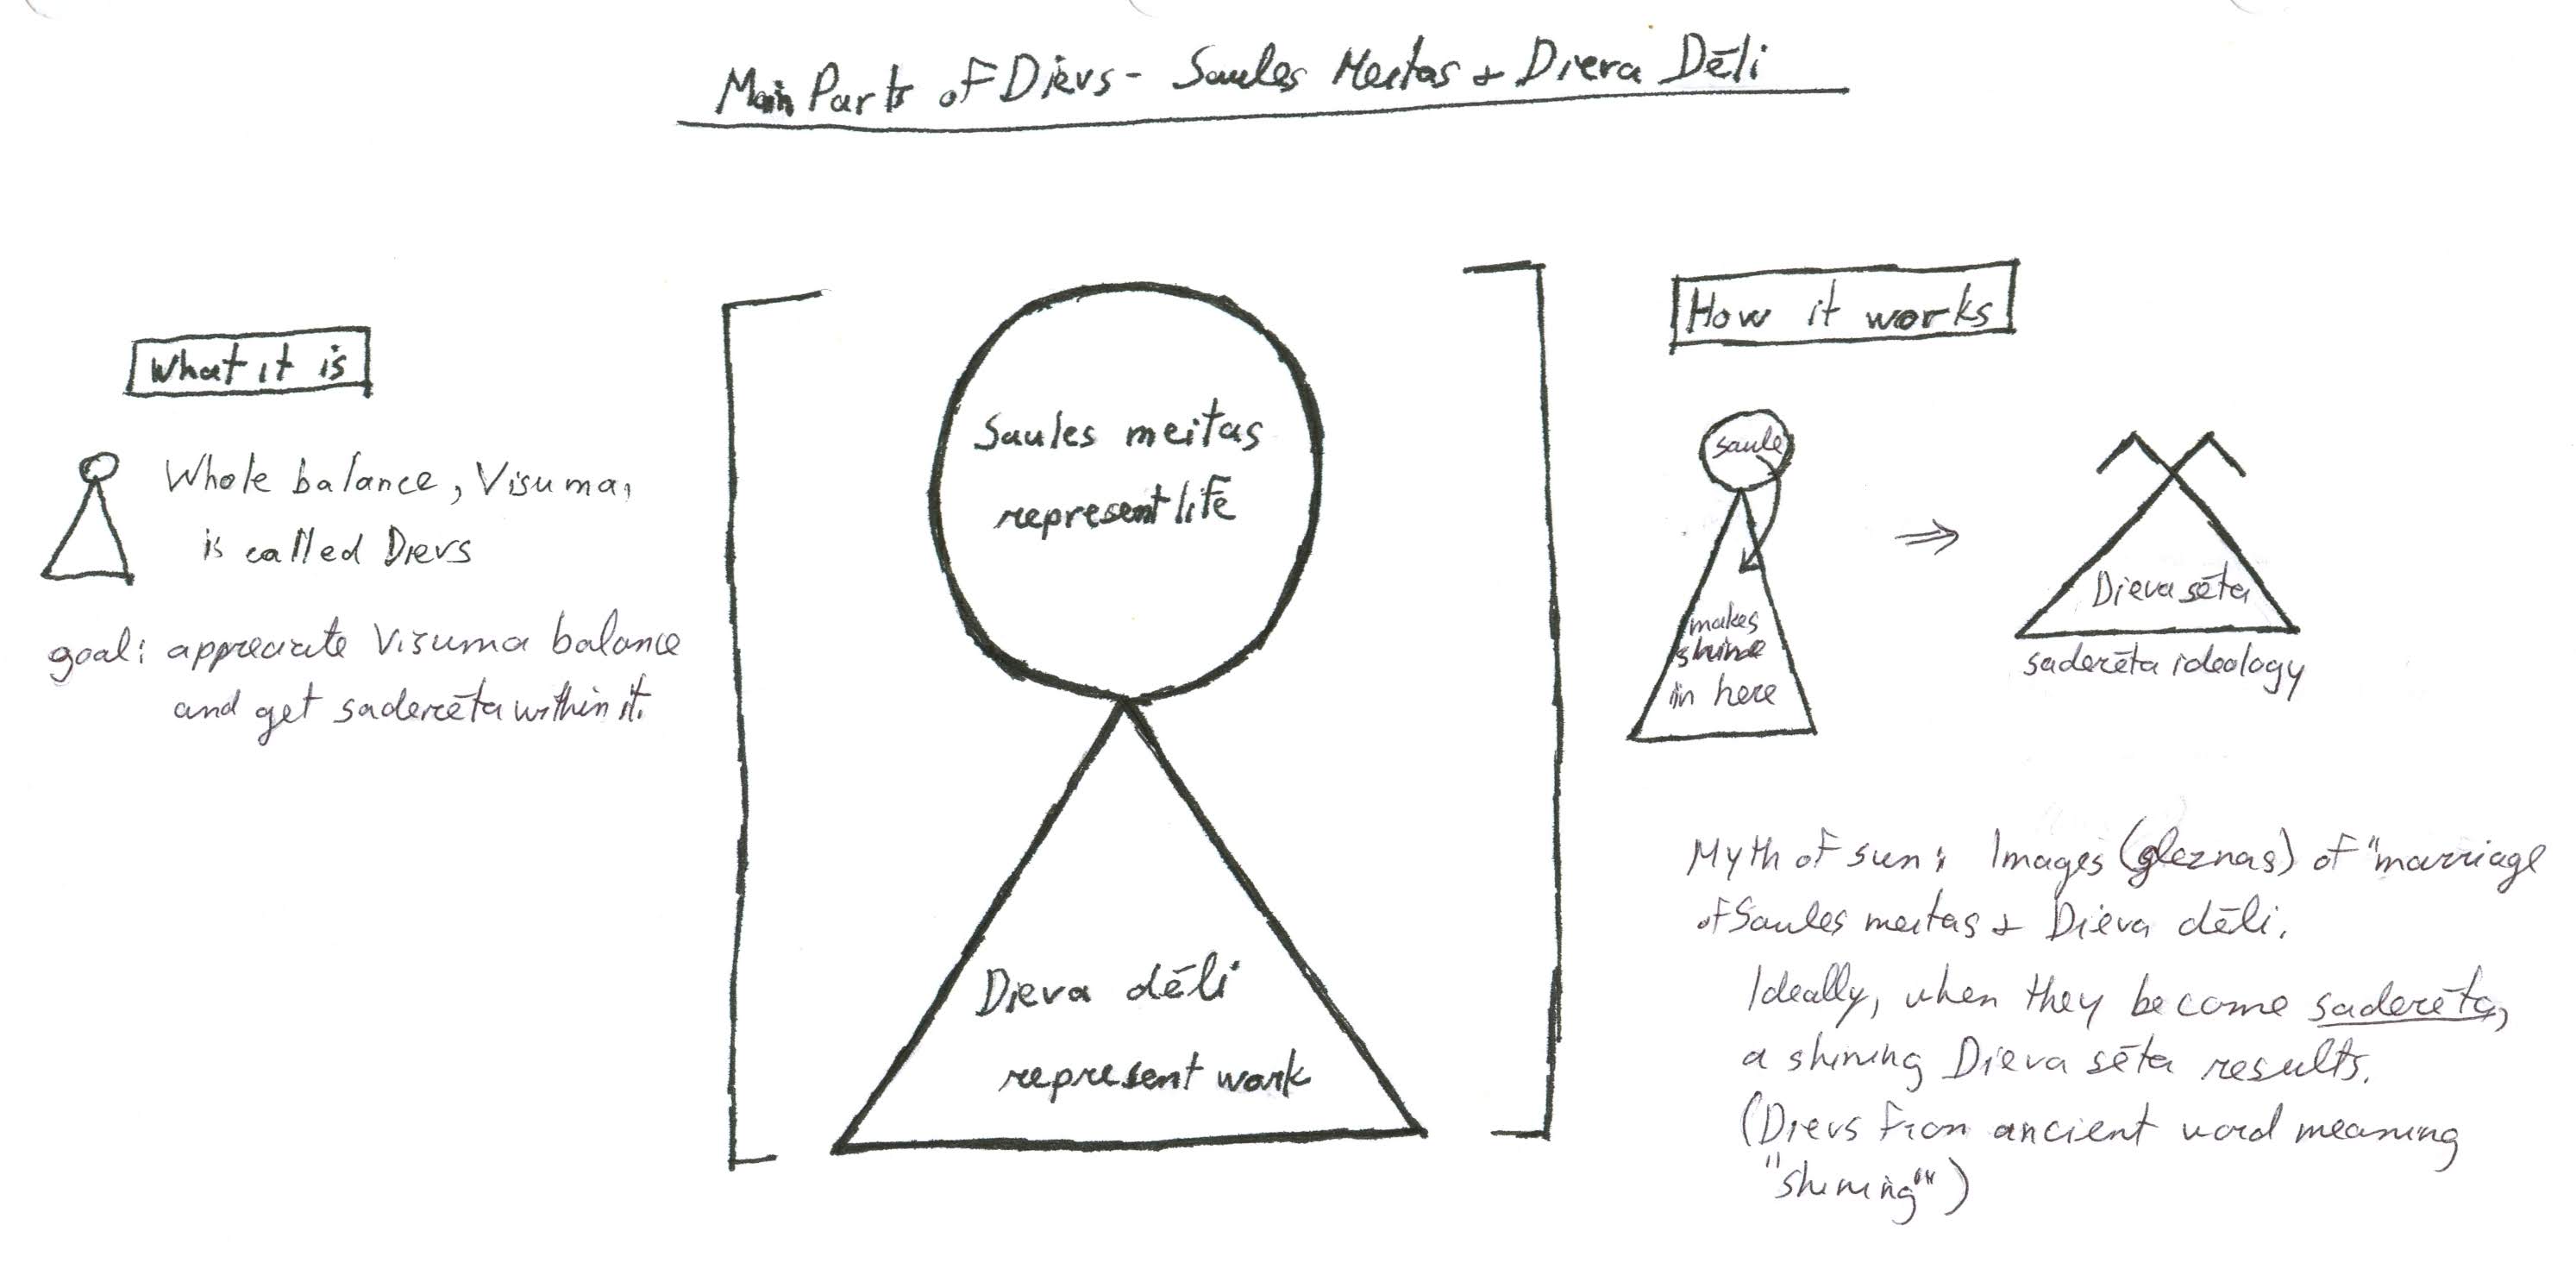 Main Parts of Dievs - Saules Meitas + Dieva Dēli
What it is
Whole balance, Visuma,
is called Dievs
goal: appreciate Visuma balance
and get saderēta within it.
Saules meitas
represent life
Dieva dēli
represent work
How it works
saule
makes
shine
in here
⇒
Dieva sēta
saderēta ideology
Myth of sun: Images (gleznas) of "marriage
of Saules meitas + Dieva dēli.
Ideally, when they become saderēta,
a shining Dieva sēta results.
(Dievs from ancient word meaning
"shining")